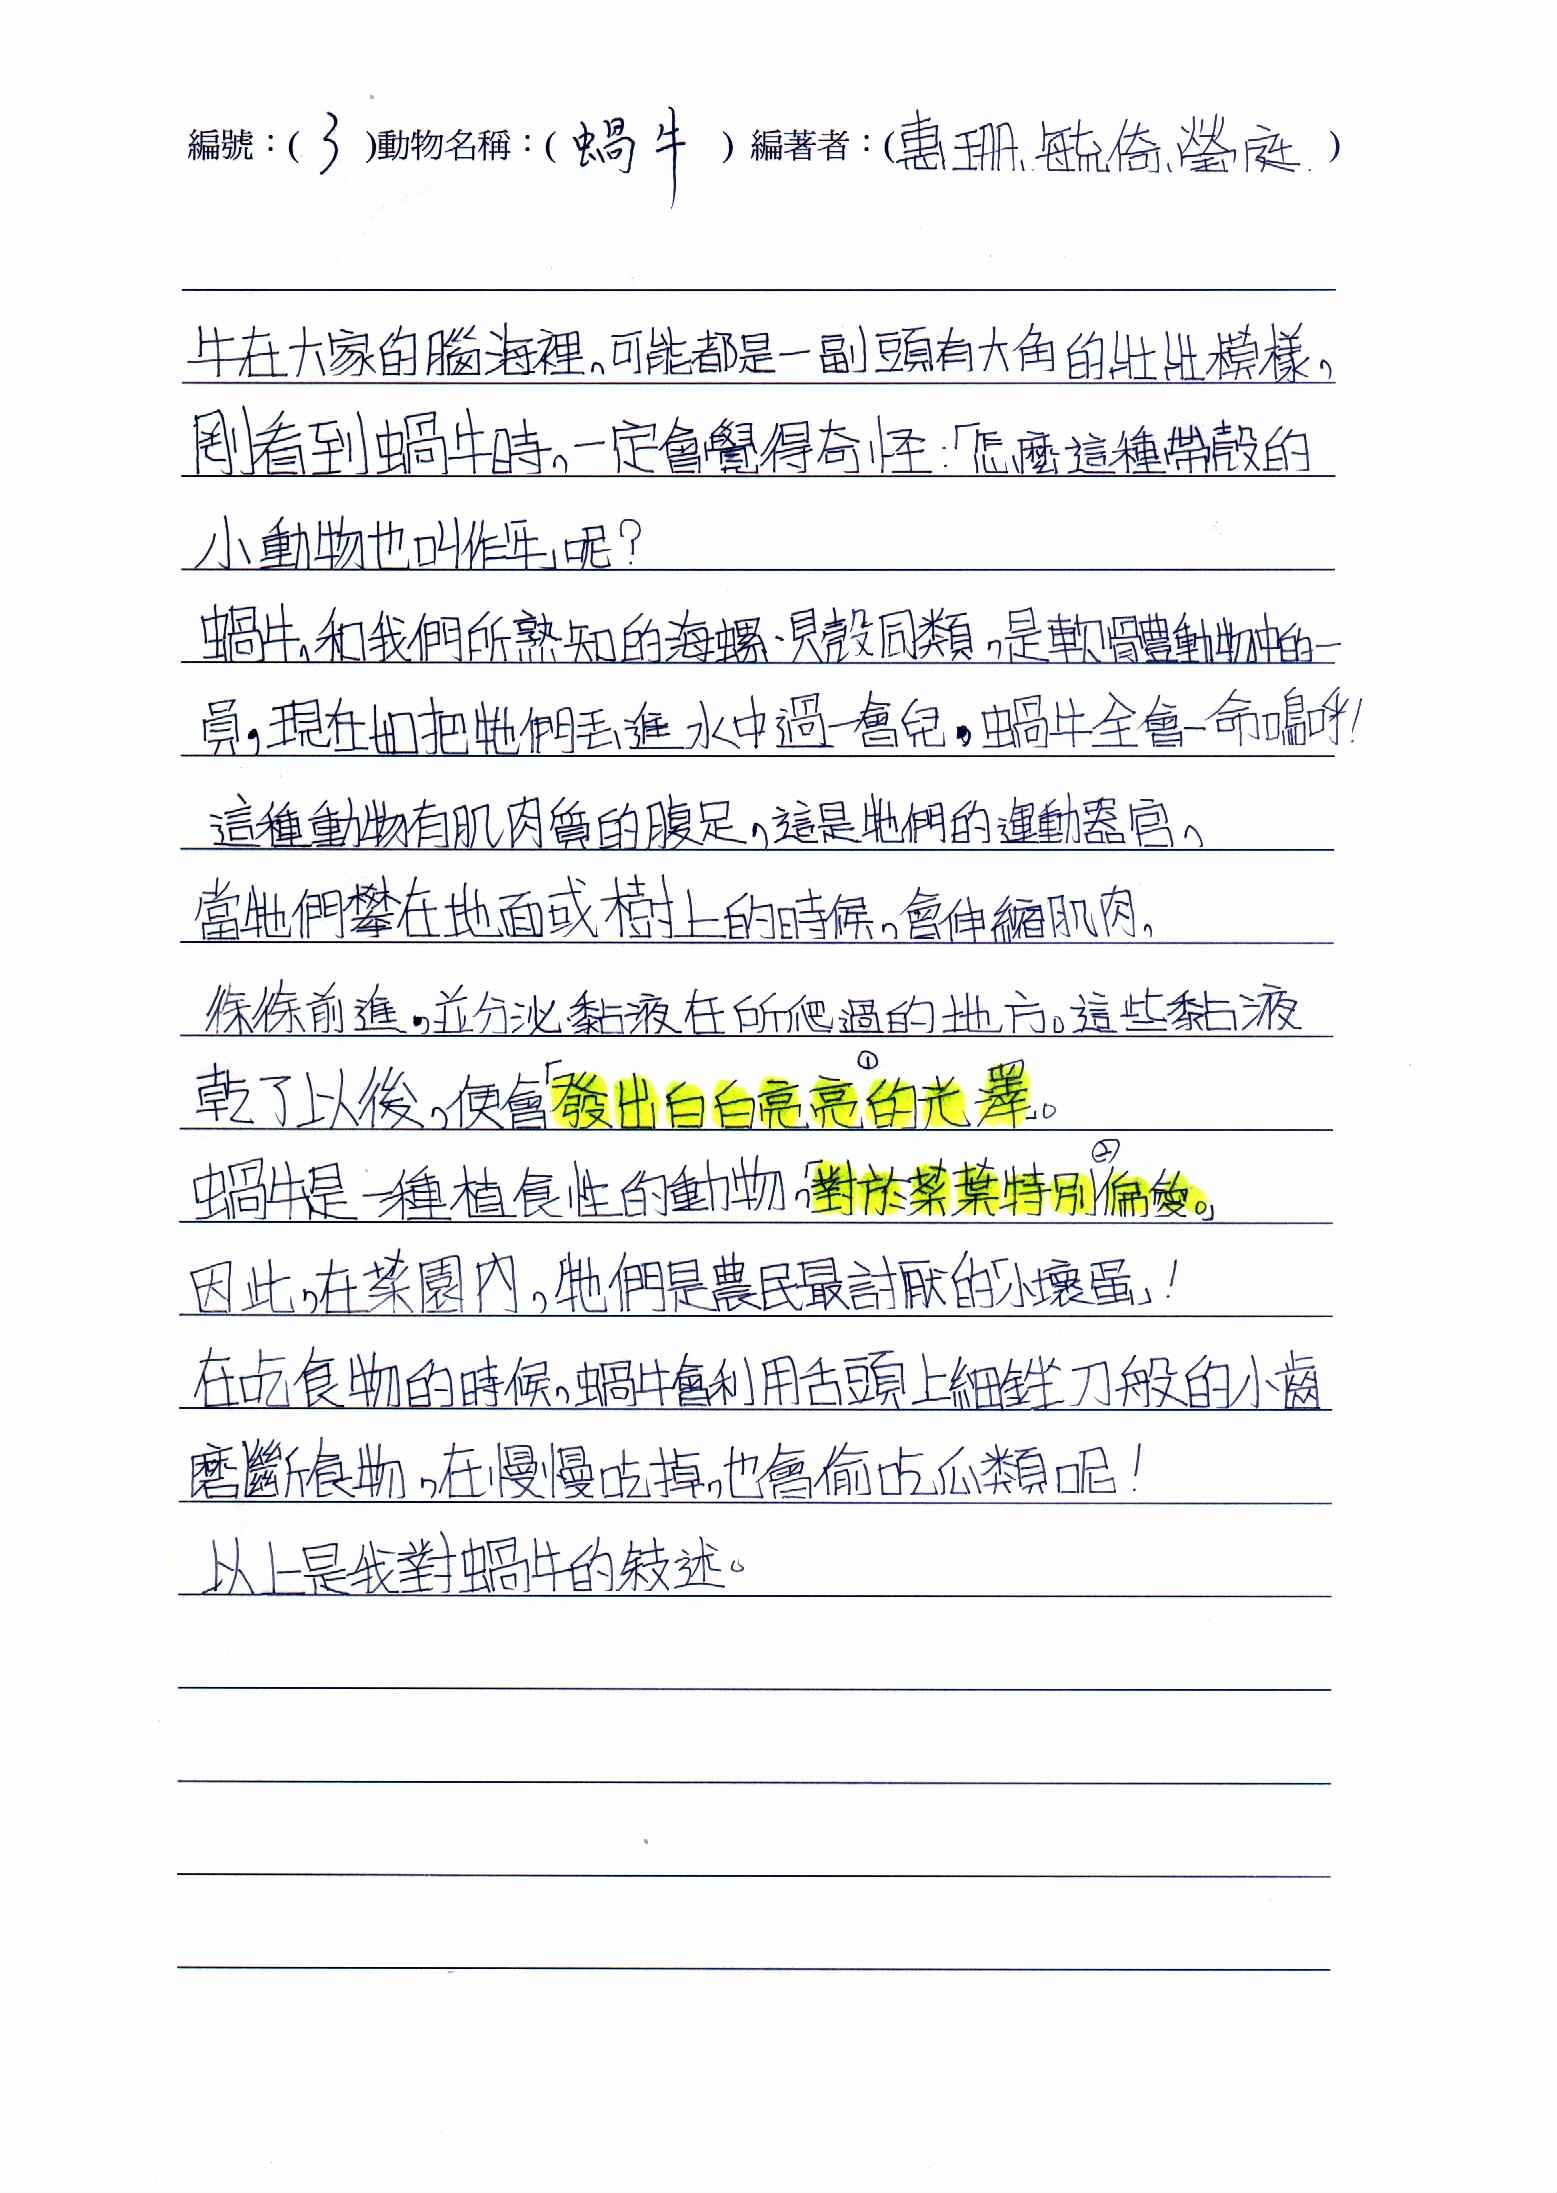 編號：( 3 )動物名稱：( 蝸牛 ) 編著者：(惠珊、毓倚、瑩庭.)
牛在大家的腦海裡，可能都是一副頭有大角的壯壯模樣，
剛看到蝸牛時，一定會覺得奇怪：「怎麼這種帶殼的
小動物也叫作牛」呢？
蝸牛，和我們所熟知的海螺、貝殼同類，是軟體動物中的一
員，現在如把牠們丟進水中過一會兒，蝸牛全會一命嗚呼！
這種動物有肌肉質的腹足，這是牠們的運動器官，
當牠們攀在地面或樹上的時候，會伸縮肌肉，
條條前進，並分泌黏液在所爬過的地方。這些黏液
乾了以後，便會「發出白白亮亮①的光澤」。
蝸牛是一種植食性的動物，「對於菜葉特別②偏愛。」
因此，在菜園內，牠們是農民最討厭的「小壞蛋」！
在吃食物的時候，蝸牛會利用舌頭上細銼刀般的小齒
磨斷食物，在慢慢吃掉，也會偷吃瓜類呢！
以上是我對蝸牛的敍述。